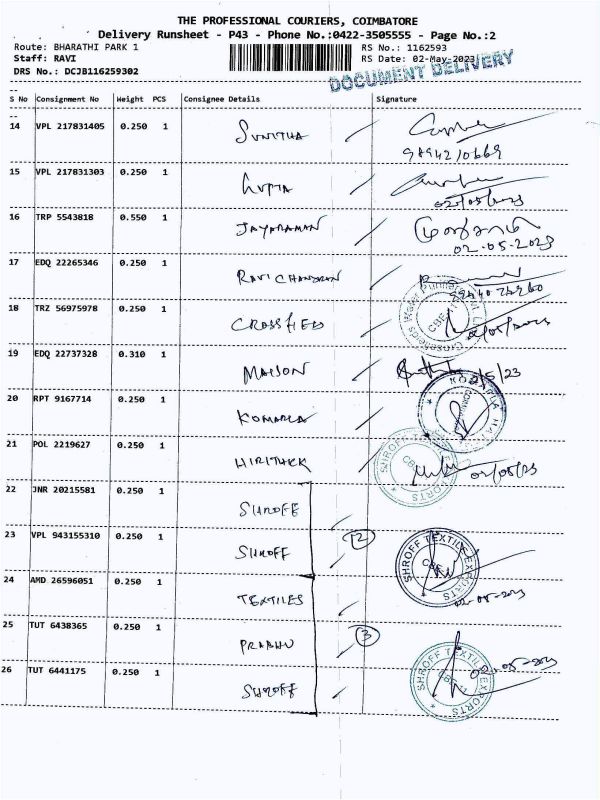 THE PROFESSIONAL COURIERS, COIMBATORE
Delivery Runsheet - P43 - Phone No.:0422-3505555 - Page No.:2
Route: BHARATHI PARK 1 RS No.: 1162593
Staff: RAVI RS Date: 02-May-2023
DRS No.: DCJB116259302
DOCUMENT DELIVERY
S No Consignment No Weight PCS Consignee Details Signature
14 VPL 217831405 0.250 1 SUNITHA
9894210669
15 VPL 217831303 0.250 1 GUPTA
02/05/2023
16 TRP 5543818 0.550 1 JAYARAMAN
02-05-2023
17 EDQ 22265346 0.250 1 RAVICHANDRAN
18 TRZ 56975978 0.250 1 CROSSFIELD
02/05/2023
19 EDQ 22737328 0.310 1 MAISON
2/5/23
20 RPT 9167714 0.250 1 KOMARLA
KOMARLA
21 POL 2219627 0.250 1 HIRITHIK
SHROFF EXPORTS
02/05/23
22 JNR 20215581 0.250 1 SHROFF
23 VPL 943155310 0.250 1 SHROFF 2
SHROFF TEXTILE EXPORTS
24 AMD 26596051 0.250 1 TEXTILES
02-05-2023
25 TUT 6438365 0.250 1 PRABHU 3
SHROFF TEXTILE EXPORTS
26 TUT 6441175 0.250 1 SHROFF
02-05-2023